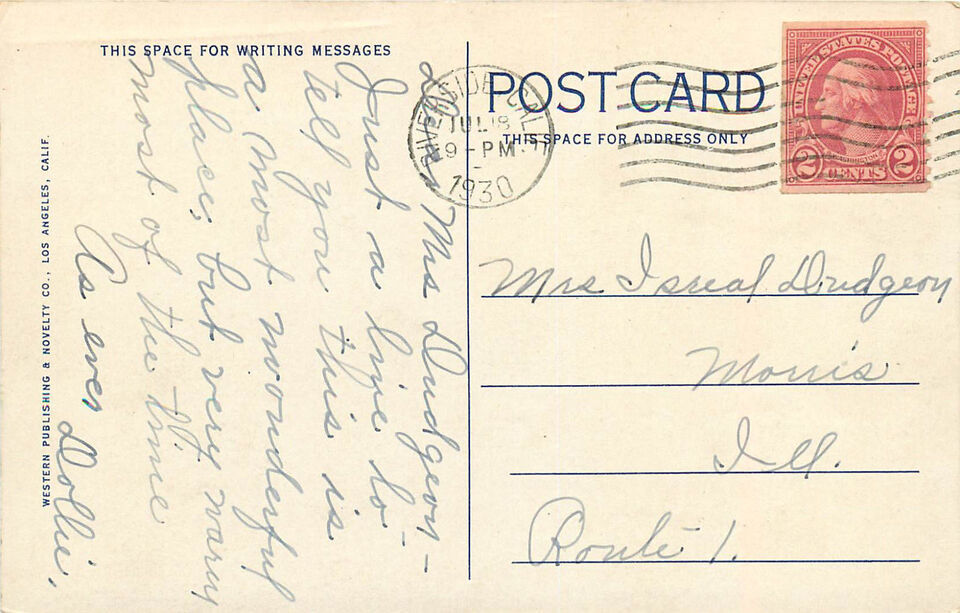 THIS SPACE FOR WRITING MESSAGES
POST CARD
THIS SPACE FOR ADDRESS ONLY
RIVERSIDE CAL
JUL 18
9 - PM
1930
UNITED STATES POSTAGE
WASHINGTON
2 CENTS 2
Mrs Dudgeon -
Just a line to -
tell you this is
a most wonderful
place; but very warm
most of the time
As ever Dollie.
Mrs Isreal Dudgeon
Morris
Ill.
Route 1.
WESTERN PUBLISHING & NOVELTY CO., LOS ANGELES, CALIF.